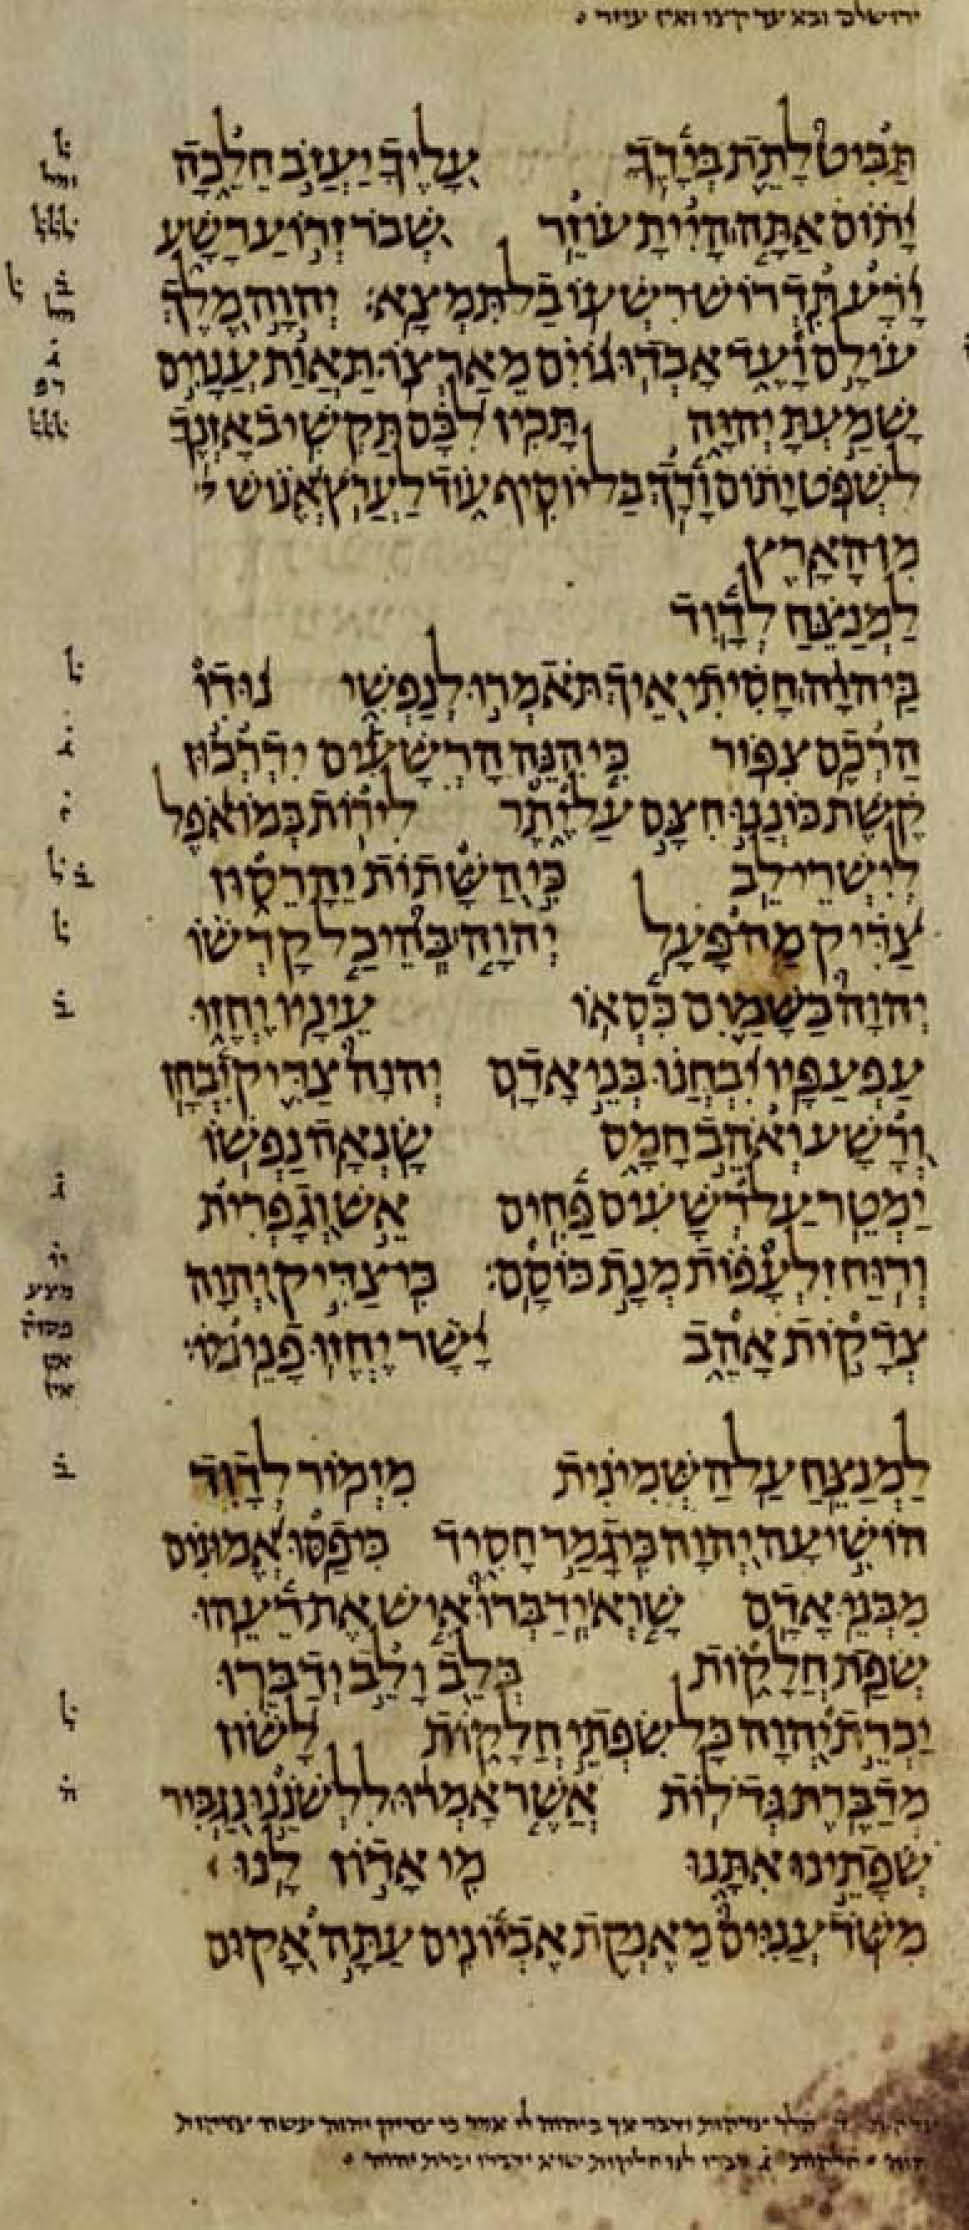 ירושלם ובא עד קצו ואין עוזר
תַּבִּיט לָתֵת בְּיָדֶךָ עָלֶיךָ יַעֲזֹב חֵלֵכָה
יָתוֹם אַתָּה הָיִיתָ עוֹזֵר שְׁבֹר זְרוֹעַ רָשָׁע
וָרָע תִּדְרוֹשׁ רִשְׁעוֹ בַל תִּמְצָא׃ יְהוָה מֶלֶךְ
עוֹלָם וָעֶד אָבְדוּ גוֹיִם מֵאַרְצוֹ׃ תַּאֲוַת עֲנָוִים
שָׁמַעְתָּ יְהוָה תָּכִין לִבָּם תַּקְשִׁיב אָזְנֶךָ
לִשְׁפֹּט יָתוֹם וָדָךְ בַּל יוֹסִיף עוֹד לַעֲרֹץ אֱנוֹשׁ
מִן הָאָרֶץ
לַמְנַצֵּחַ לְדָוִד
בַּיהוָה חָסִיתִי אֵיךְ תֹּאמְרוּ לְנַפְשִׁי נוּדוֹ
הַרְכֶם צִפּוֹר כִּי הִנֵּה הָרְשָׁעִים יִדְרְכוּן
קֶשֶׁת כּוֹנְנוּ חִצָּם עַל יֶתֶר לִירוֹת בְּמוֹ אֹפֶל
לְיִשְׁרֵי לֵב כִּי הַשָּׁתוֹת יֵהָרֵסוּן
צַדִּיק מַה פָּעָל יְהוָה בְּהֵיכַל קָדְשׁוֹ
יְהוָה בַּשָּׁמַיִם כִּסְאוֹ עֵינָיו יֶחֱזוּ
עַפְעַפָּיו יִבְחֲנוּ בְּנֵי אָדָם יְהוָה צַדִּיק יִבְחָן
וְרָשָׁע וְאֹהֵב חָמָס שָׂנְאָה נַפְשׁוֹ
יַמְטֵר עַל רְשָׁעִים פַּחִים אֵשׁ וְגָפְרִית
וְרוּחַ זִלְעָפוֹת מְנָת כּוֹסָם׃ כִּי צַדִּיק יְהוָה
צְדָקוֹת אָהֵב יָשָׁר יֶחֱזוּ פָנֵימוֹ׃
לַמְנַצֵּחַ עַל הַשְּׁמִינִית מִזְמוֹר לְדָוִד
הוֹשִׁיעָה יְהוָה כִּי גָמַר חָסִיד כִּי פַסּוּ אֱמוּנִים
מִבְּנֵי אָדָם שָׁוְא יְדַבְּרוּ אִישׁ אֶת רֵעֵהוּ
שְׂפַת חֲלָקוֹת בְּלֵב וָלֵב יְדַבֵּרוּ
יַכְרֵת יְהוָה כָּל שִׂפְתֵי חֲלָקוֹת לָשׁוֹן
מְדַבֶּרֶת גְּדֹלוֹת אֲשֶׁר אָמְרוּ לִלְשֹׁנֵנוּ נַגְבִּיר
שְׂפָתֵינוּ אִתָּנוּ מִי אָדוֹן לָנוּ
מִשֹּׁד עֲנִיִּים מֵאֶנְקַת אֶבְיוֹנִים עַתָּה אָקוּם
הלך צדקות ודבר אך ביהוה לי אמר כי צדיק יהוה עשה צדקות
חלקות ג דברו לנו חלקות שוא ידברו יכרת יהוה